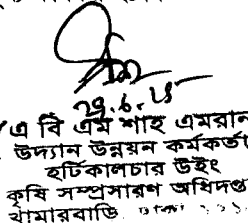 ২৯.৬.২৫
এ বি এম শাহ এমরান
উদ্যান উন্নয়ন কর্মকর্তা
হর্টিকালচার উইং
কৃষি সম্প্রসারণ অধিদপ্ত
খামারবাড়ি